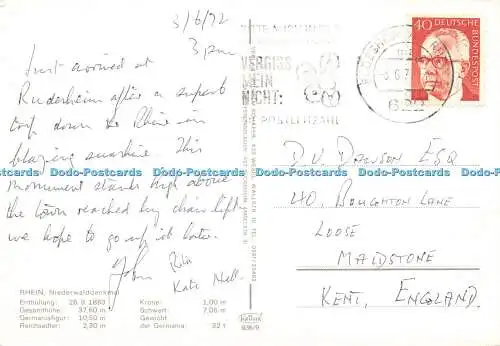 3/6/72
3 pm
Just arrived at
Rudesheim after a superb
trip down the Rhine in
blazing sunshine. This
monument stands high above
the town reached by chairlift
we hope to go up it later.
John Rita
Kate Niall.
RHEIN, Niederwalddenkmal
Enthüllung: 28. 9. 1883 Krone: 1,00 m
Gesamthöhe: 37,60 m Schwert: 7,06 m
Germaniafigur: 10,50 m Gewicht
Reichsadler: 2,30 m der Germania: 32 t
VERGISS
MEIN
NICHT:
POSTLEITZAHL
40 DEUTSCHE
BUNDESPOST
D. V. DAWSON ESQ
40, BOUGHTON LANE
LOOSE
MAIDSTONE
KENT, ENGLAND.
936/9
Dodo-Postcards Dodo-Postcards Dodo-Postcards Dodo-Postcards